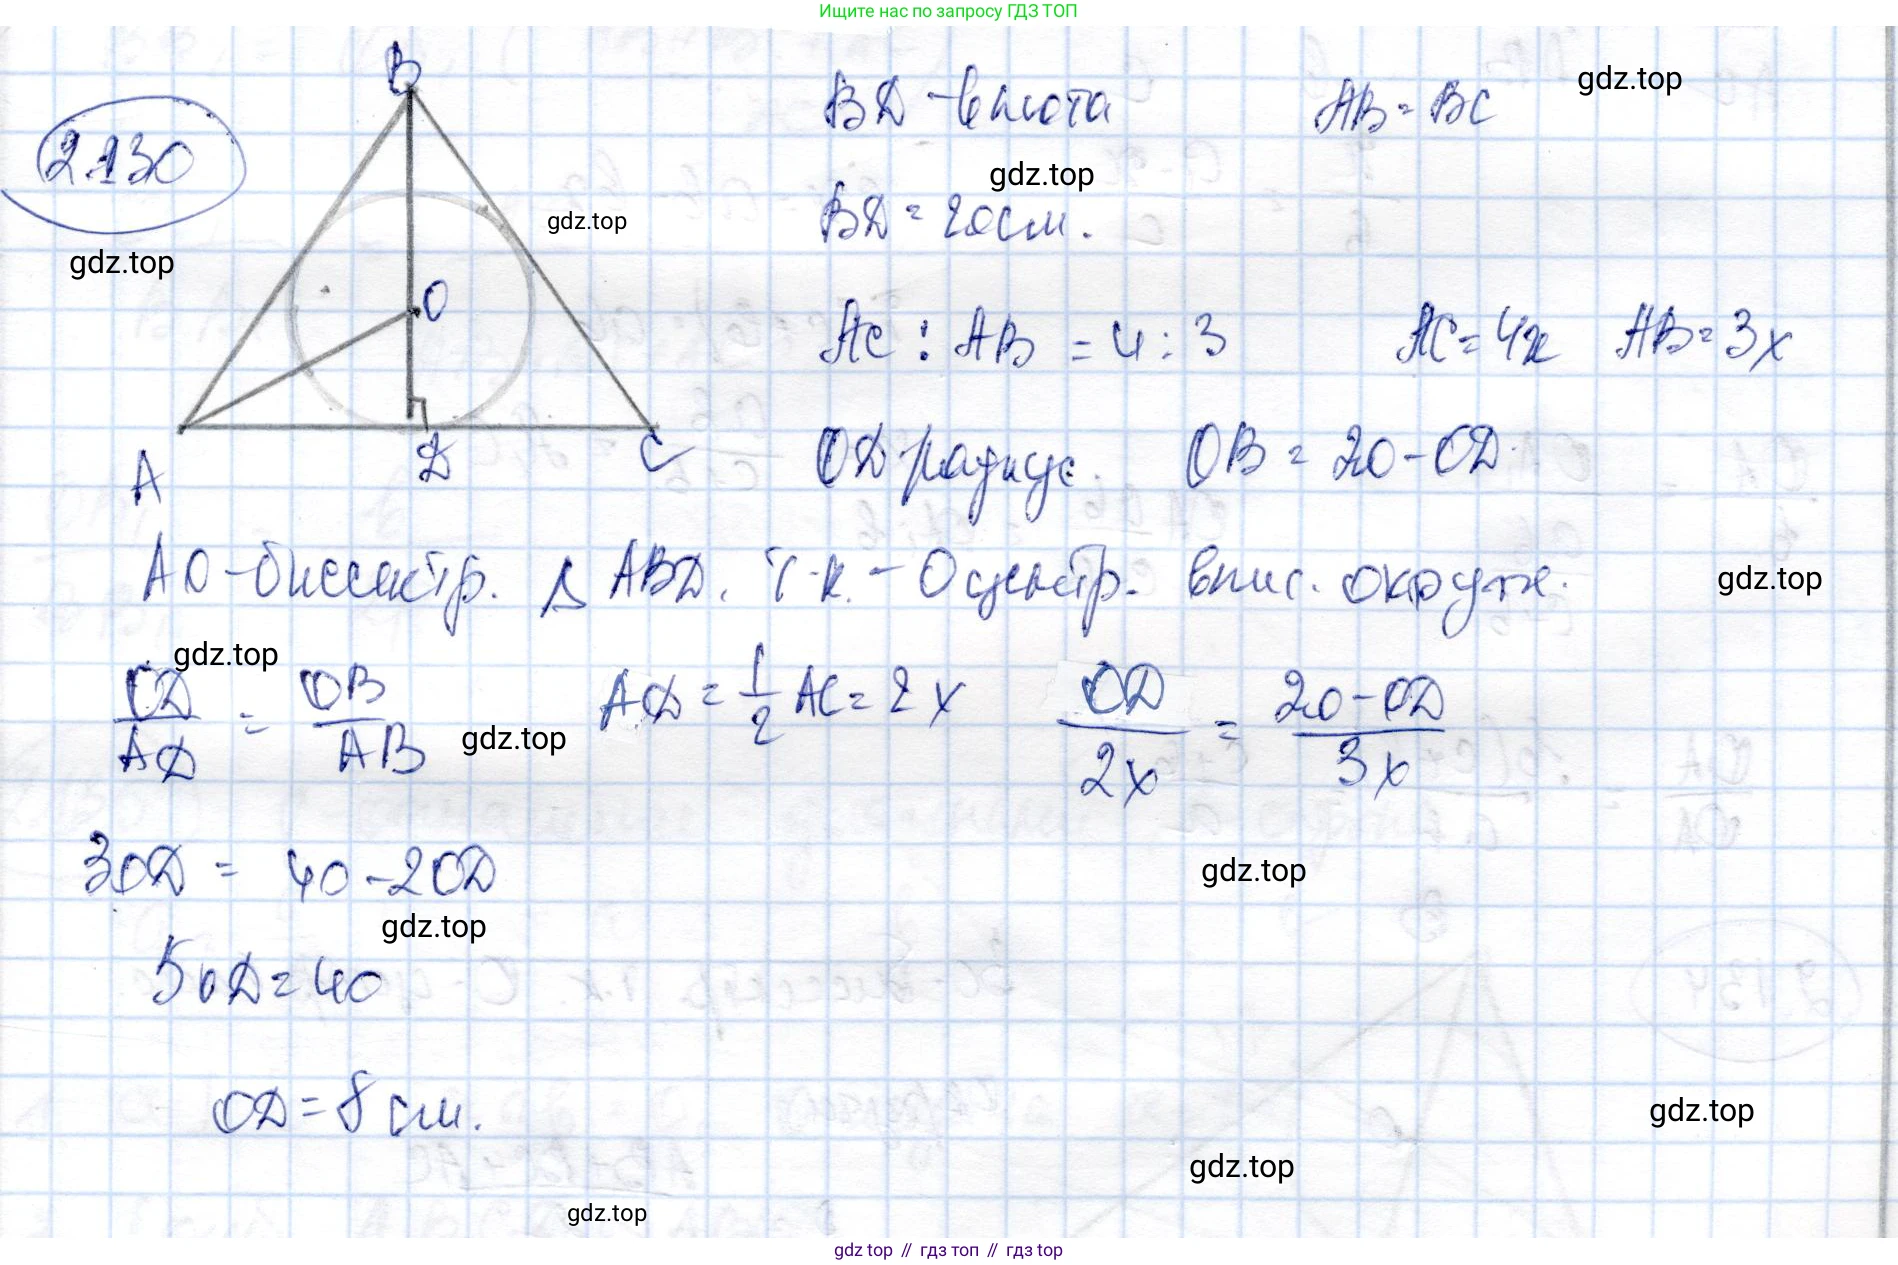 Ищите нас по запросу ГДЗ ТОП
2.130
B
BD - высота AB = BC
gdz.top
gdz.top
gdz.top
gdz.top
BD = 20см.
O
AC : AB = 4 : 3 AC = 4x AB = 3x
A D C
OD радиус. OB = 20 - OD.
AO - биссектр. Δ ABD. т.к. - O центр. впис. окружн.
gdz.top
gdz.top
OD/AD = OB/AB AD = 1/2 AC = 2x OD/2x = 20-OD/3x
gdz.top
3OD = 40 - 2OD
gdz.top
gdz.top
5OD = 40
OD = 8 см.
gdz.top
gdz.top
gdz.top
gdz top // гдз топ // гдз top